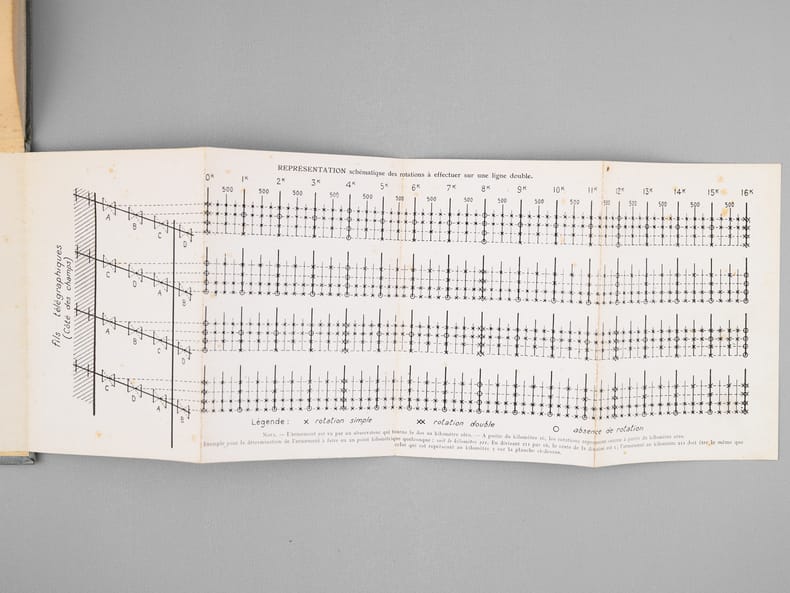 REPRÉSENTATION schématique des rotations à effectuer sur une ligne double.
0ᴷ 1ᴷ 2ᴷ 3ᴷ 4ᴷ 5ᴷ 6ᴷ 7ᴷ 8ᴷ 9ᴷ 10ᴷ 11ᴷ 12ᴷ 13ᴷ 14ᴷ 15ᴷ 16ᴷ
500 500 500 500 500 500 500 500 500 500 500 500 500 500 500 500
Fils télégraphiques
(Côté des champs)
A B C D
A B
A B D
C D A E
Légende: × rotation simple ×× rotation double ○ absence de rotation
NOTA. — L'armement est vu par un observateur qui tourne le dos au kilomètre zéro. — A partir du kilomètre 16, les rotations reprennent comme à partir du kilomètre zéro.
Exemple pour la détermination de l'armement à faire en un point kilométrique quelconque : soit le kilomètre En divisant par 16, le reste de la division est l'armement au kilomètre doit être le même que
celui qui est représenté au kilomètre sur la planche ci-dessus.